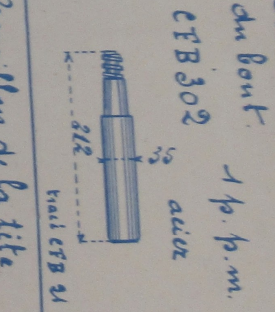 du bout. 1 p. p. m.
CFB 302 acier
35
212
tracé CFB 21
de la tête